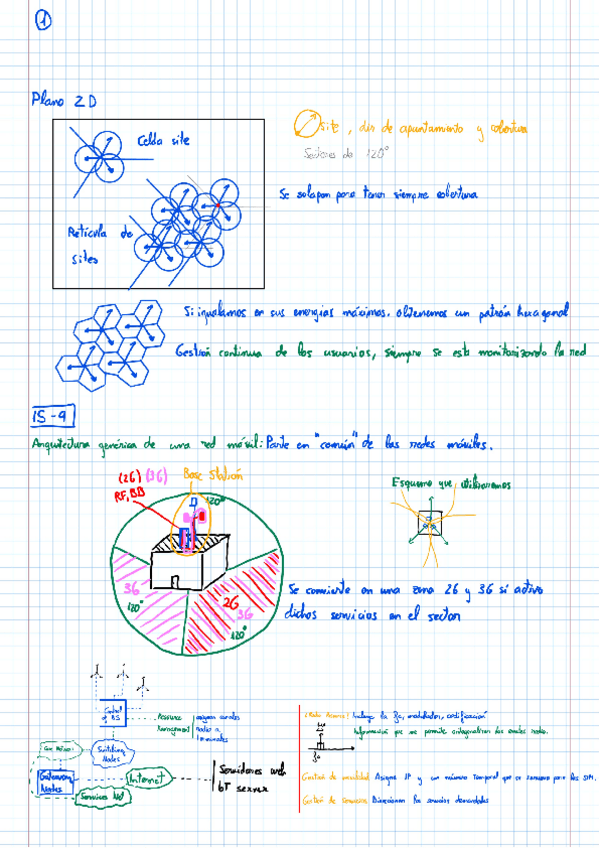 1
Plano 2D
Celda site
Site, dir de apuntamiento y cobertura
Sectores de 120°
Se solapan para tener siempre cobertura
Retícula de
sites
Si igualamos en sus energías máximas, obtenemos un patrón hexagonal
Gestión continua de los usuarios, siempre se está monitorizando la red
IS-9
Arquitectura genérica de una red móvil: Parte en "común" de las redes móviles.
(2G) (3G)
Base Station
RF, BB
120°
Esquema que utilizaremos
3G
120°
2G
3G
120°
Se convierte en una zona 2G y 3G si activo
dichos servicios en el sector
Control
of BS
Resource
Management
asignan canales
radio a
terminales
Switching
Nodes
Gateway
Nodes
Internet
Services Net
Servidores web
(Radio Access): Incluye la fc, modulador, codificación
Información que me permite
Gestión de movilidad Asigna IP y un número temporal que se
Gestión de servicios